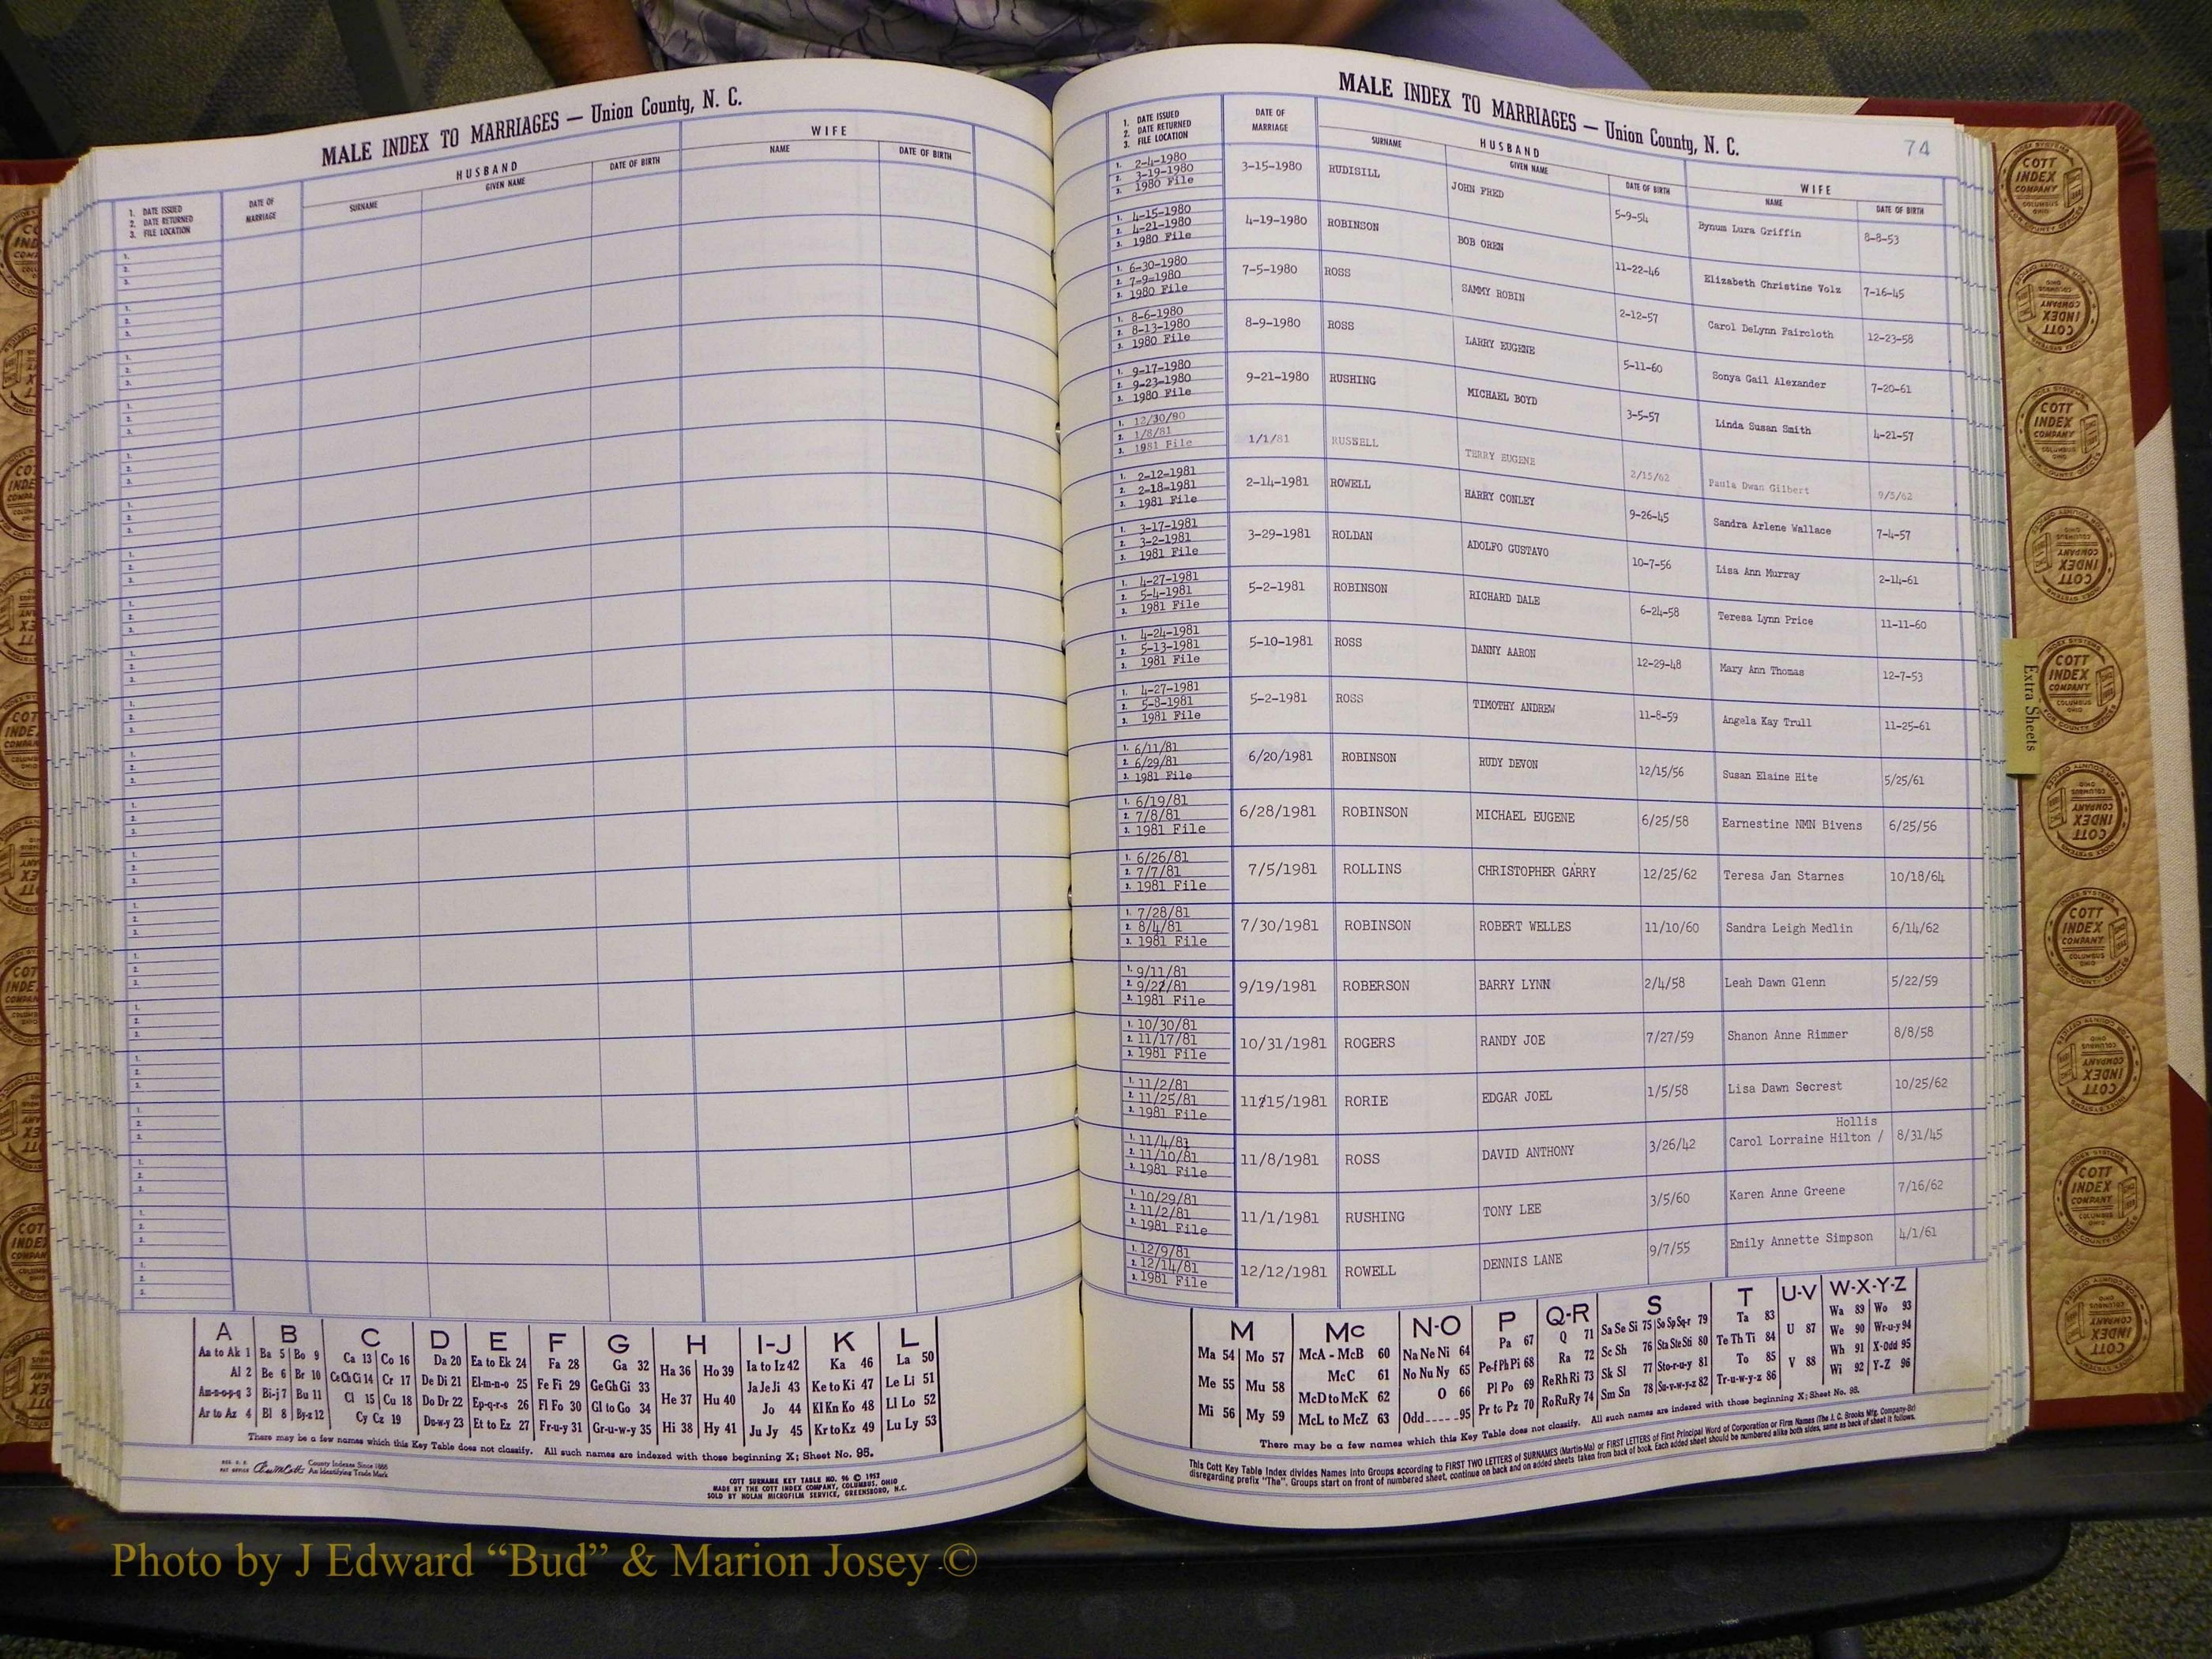 MALE INDEX TO MARRIAGES — Union County, N. C.
HUSBAND WIFE
1. DATE ISSUED
2. DATE RETURNED
3. FILE LOCATION
DATE OF MARRIAGE SURNAME GIVEN NAME DATE OF BIRTH NAME DATE OF BIRTH
A B C D E F G H I-J K L
Aa to Ak 1 Ba 5 Bo 9 Ca 13 Co 16 Da 20 Ea to Ek 24 Fa 28 Ga 32 Ha 36 Ho 39 Ia to Iz 42 Ka 46 La 50
Al 2 Be 6 Br 10 Ce Ch Ci 14 Cr 17 De Di 21 El-m-n-o 25 Fe Fi 29 Ge Gh Gi 33 He 37 Hu 40 Ja Je Ji 43 Ke to Ki 47 Le Li 51
Am-n-o-p-q 3 Bi-j 7 Bu 11 Cl 15 Cu 18 Do Dr 22 Ep-q-r-s 26 Fl Fo 30 Gl to Go 34 Hi 38 Hy 41 Jo 44 Kl Kn Ko 48 Ll Lo 52
Ar to Az 4 Bl 8 By-z 12 Cy Cz 19 Du-w-y 23 Et to Ez 27 Fr-u-y 31 Gr-u-w-y 35 Ju Jy 45 Kr to Kz 49 Lu Ly 53
There may be a few names which this Key Table does not classify. All such names are indexed with those beginning X; Sheet No. 95.
County Indexes Since 1888
An Identifying Trade Mark
COTT SURNAME KEY TABLE NO. 96 © 1952
MADE BY THE COTT INDEX COMPANY, COLUMBUS, OHIO
SOLD BY NOLAN MICROFILM SERVICE, GREENSBORO, N.C.
MALE INDEX TO MARRIAGES — Union County, N. C.
74
1. DATE ISSUED
2. DATE RETURNED
3. FILE LOCATION
DATE OF MARRIAGE
HUSBAND WIFE
SURNAME GIVEN NAME DATE OF BIRTH NAME DATE OF BIRTH
1. 2-4-1980
2. 3-19-1980
3. 1980 File
3-15-1980 RUDISILL JOHN FRED 5-9-54 Bynum Lura Griffin 8-8-53
1. 4-15-1980
2. 4-21-1980
3. 1980 File
4-19-1980 ROBINSON BOB OREN 11-22-46 Elizabeth Christine Volz 7-16-45
1. 6-30-1980
2. 7-9-1980
3. 1980 File
7-5-1980 ROSS SAMMY ROBIN 2-12-57 Carol DeLynn Faircloth 12-23-58
1. 8-6-1980
2. 8-13-1980
3. 1980 File
8-9-1980 ROSS LARRY EUGENE 5-11-60 Sonya Gail Alexander 7-20-61
1. 9-17-1980
2. 9-23-1980
3. 1980 File
9-21-1980 RUSHING MICHAEL BOYD 3-5-57 Linda Susan Smith 4-21-57
1. 12/30/80
2. 1/8/81
3. 1981 File
1/1/81 RUSSELL TERRY EUGENE 2/15/62 Paula Dwan Gilbert 9/5/62
1. 2-12-1981
2. 2-18-1981
3. 1981 File
2-14-1981 ROWELL HARRY CONLEY 9-26-45 Sandra Arlene Wallace 7-4-57
1. 3-17-1981
2. 3-2-1981
3. 1981 File
3-29-1981 ROLDAN ADOLFO GUSTAVO 10-7-56 Lisa Ann Murray 2-14-61
1. 4-27-1981
2. 5-4-1981
3. 1981 File
5-2-1981 ROBINSON RICHARD DALE 6-24-58 Teresa Lynn Price 11-11-60
1. 4-24-1981
2. 5-13-1981
3. 1981 File
5-10-1981 ROSS DANNY AARON 12-29-48 Mary Ann Thomas 12-7-53
1. 4-27-1981
2. 5-8-1981
3. 1981 File
5-2-1981 ROSS TIMOTHY ANDREW 11-8-59 Angela Kay Trull 11-25-61
1. 6/11/81
2. 6/29/81
3. 1981 File
6/20/1981 ROBINSON RUDY DEVON 12/15/56 Susan Elaine Hite 5/25/61
1. 6/19/81
2. 7/8/81
3. 1981 File
6/28/1981 ROBINSON MICHAEL EUGENE 6/25/58 Earnestine NMN Bivens 6/25/56
1. 6/26/81
2. 7/7/81
3. 1981 File
7/5/1981 ROLLINS CHRISTOPHER GARRY 12/25/62 Teresa Jan Starnes 10/18/64
1. 7/28/81
2. 8/4/81
3. 1981 File
7/30/1981 ROBINSON ROBERT WELLES 11/10/60 Sandra Leigh Medlin 6/14/62
1. 9/11/81
2. 9/22/81
3. 1981 File
9/19/1981 ROBERSON BARRY LYNN 2/4/58 Leah Dawn Glenn 5/22/59
1. 10/30/81
2. 11/17/81
3. 1981 File
10/31/1981 ROGERS RANDY JOE 7/27/59 Shanon Anne Rimmer 8/8/58
1. 11/2/81
2. 11/25/81
3. 1981 File
11/15/1981 RORIE EDGAR JOEL 1/5/58 Lisa Dawn Secrest 10/25/62
1. 11/4/81
2. 11/10/81
3. 1981 File
Hollis
11/8/1981 ROSS DAVID ANTHONY 3/26/42 Carol Lorraine Hilton / 8/31/45
1. 10/29/81
2. 11/2/81
3. 1981 File
11/1/1981 RUSHING TONY LEE 3/5/60 Karen Anne Greene 7/16/62
1. 12/9/81
2. 12/14/81
3. 1981 File
12/12/1981 ROWELL DENNIS LANE 9/7/55 Emily Annette Simpson 4/1/61
M Mc N-O P Q-R S T U-V W-X-Y-Z
Ma 54 Mo 57 McA - McB 60 Na Ne Ni 64 Pa 67 Q 71 Sa Se Si 75 So Sp Sq-r 79 Ta 83 U 87 Wa 89 Wo 93
Me 55 Mu 58 McC 61 No Nu Ny 65 Pe-f Ph Pi 68 Ra 72 Sc Sh 76 Sta Ste Sti 80 Te Th Ti 84 V 88 We 90 Wr-u-y 94
Mi 56 My 59 McD to McK 62 O 66 Pl Po 69 Re Rh Ri 73 Sk Sl 77 Sto-r-u-y 81 To 85 Wh 91 X-Odd 95
McL to McZ 63 Odd-----95 Pr to Pz 70 Ro Ru Ry 74 Sm Sn 78 Su-v-w-y-z 82 Tr-u-w-y-z 86 Wi 92 Y-Z 96
There may be a few names which this Key Table does not classify. All such names are indexed with those beginning X; Sheet No. 95.
This Cott Key Table Index divides Names Into Groups according to FIRST TWO LETTERS of SURNAMES (Martin-Ma) or FIRST LETTERS of First Principal Word of Corporation or Firm Names (The J. C. Brooks Mfg. Company-Br)
disregarding prefix "The". Groups start on front of numbered sheet, continue on back and on added sheets taken from back of book. Each added sheet should be numbered alike both sides, same as back of sheet it follows.
Extra Sheets
COTT INDEX COMPANY
COLUMBUS OHIO
Photo by J Edward “Bud” & Marion Josey ©